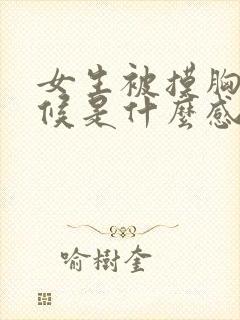 女生被摸胸
候是什麼感
喻樹奎